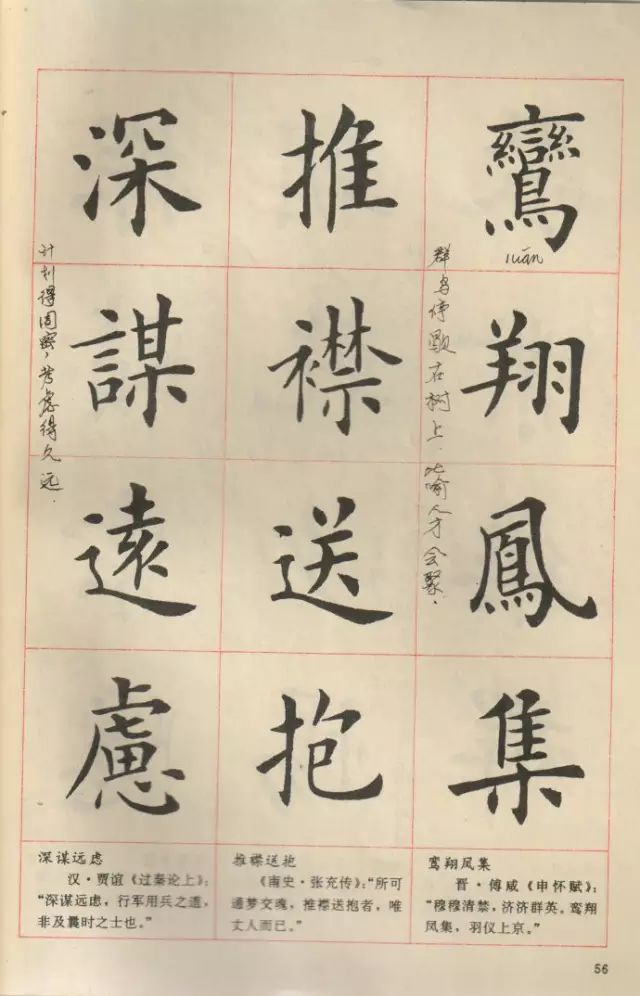 鸞翔鳳集
luán
群鸟停歇在树上．比喻人才会聚．
推襟送抱
深謀遠慮
计划得周密，考虑得久远．
深谋远虑
汉·贾谊《过秦论上》：
“深谋远虑，行军用兵之道，
非及曩时之士也。”
推襟送抱
《南史·张充传》：“所可
通梦交魂，推襟送抱者，唯
丈人而已。”
鸾翔凤集
晋·傅咸《申怀赋》：
“穆穆清禁，济济群英。鸾翔
凤集，羽仪上京。”
56